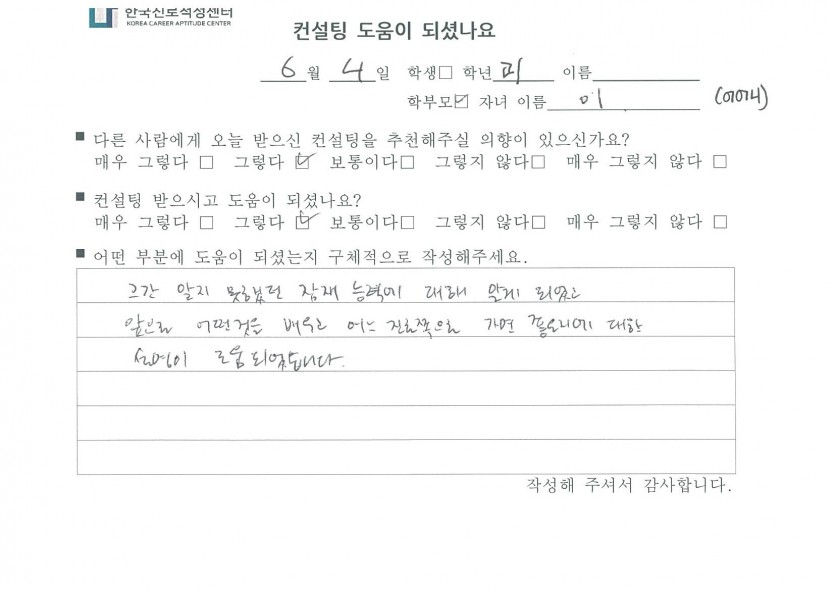 한국진로적성센터
KOREA CAREER APTITUDE CENTER
컨설팅 도움이 되셨나요
6월 4일 학생□ 학년 이름
학부모☑ 자녀 이름 이 (어머니)
■ 다른 사람에게 오늘 받으신 컨설팅을 추천해주실 의향이 있으신가요?
매우 그렇다 □ 그렇다 ☑ 보통이다□ 그렇지 않다□ 매우 그렇지 않다 □
■ 컨설팅 받으시고 도움이 되셨나요?
매우 그렇다 □ 그렇다 ☑ 보통이다□ 그렇지 않다□ 매우 그렇지 않다 □
■ 어떤 부분에 도움이 되셨는지 구체적으로 작성해주세요.
그간 알지 못했던 잠재 능력에 대해 알게 되었고
앞으로 어떤것을 배우고 어느 진로쪽으로 가면 좋으니에 대한
설명이 도움 되었습니다.
작성해 주셔서 감사합니다.